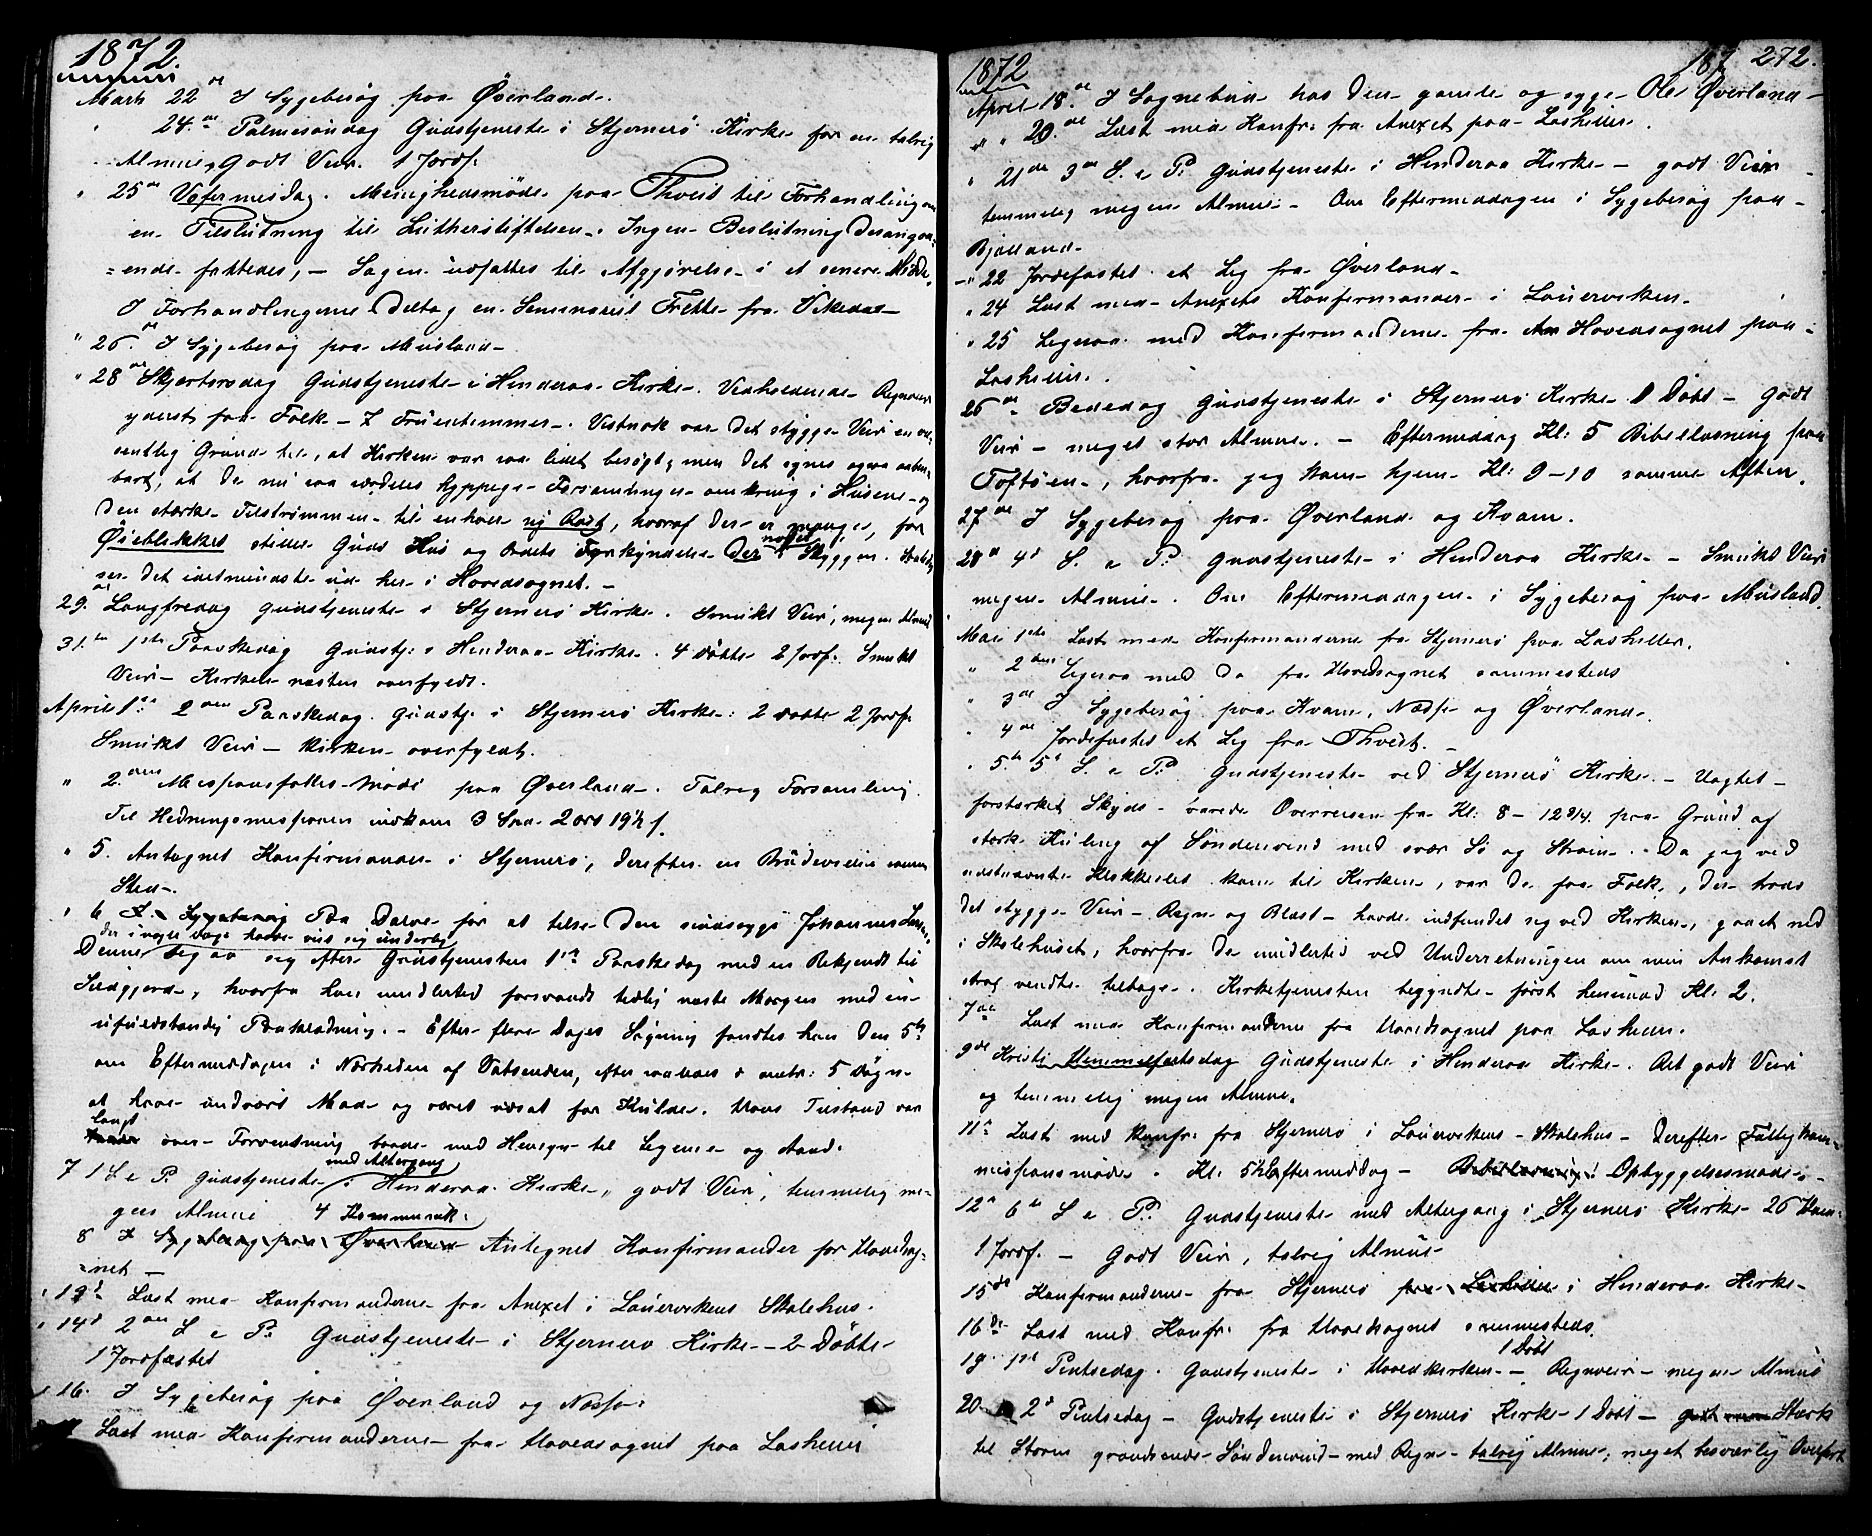 1872.
Marts 22de I Sygebesøg paa Øverland.
" 24de Palmesøndag Gudstjeneste i Stjernerø Kirke for en talrig
Almue, Godt Veir. 1 Jordf.
" 25de Vofermesdag. Menighedsmøde paa Thveit til Forhandling om
en Tilslutning til Lutherstiftelsen. Ingen Beslutning desangaa-
=ende fattedes, – Sagen udsattes til Afgjørelse i et senere Møde.
I Forhandlingerne deltog en Seminarist Frette fra Vikedal
" 26de I Sygebesøg paa Musland
" 28de Skjærtorsdag Gudstjeneste i Hinderaa Kirke. Vedholdende Regnveir
yderst faa Folk – 7 Fruentimmer. Vistnok var det stygge Veir en væ-
sentlig Grund til, at Kirken var saa lidet besøgt; men det synes ogsaa aaben-
bart, at de nu saa særdeles hyppige Forsamlinger omkring i Husene og
den stærke Tilstrømmen til enhver ny Røst, hvoraf der er mange, for
Øieblikket stiller Guds Hus og Ordets Forkyndelse der noget i Skyggen. Saaledes
ser det idetmindste ud her i Hovedsognet. –
29de Langfredag Gudstjeneste i Stjernerø Kirke. Smukt Veir, megen Almue
31te 1ste Paaskedag Gudstj. i Hinderaa Kirke. 4 døbte 2 Jordf. Smukt
Veir – Kirken næsten overfyldt.
April 1ste 2den Paaskedag. Gudstj. i Stjernerø Kirke: 2 døbte 2 Jordf.
Smukt Veir – Kirken overfyldt.
" 2den Missionsfælles-Møde paa Øverland. Talrig Forsamling.
Til Hedningemissionen indkom 3 Spd. 2 ort 19½ s.
" 5. Antegnet Konfirmander i Stjernerø, derefter en Brudevielse samme
Sted.
" 6 I Sygebesøg Paa Dalve for at tilse den sindssyge Johannes
der i nogle Dage havde vist sig underlig
Denne begav sig efter Gudstjenesten 1ste Paaskedag med en Bekjendt til
hvorfra han imidlertid forsvandt tidlig næste Morgen med en
ufuldstændig Paaklædning. – Efter flere Dages Søgning fandtes han den 5te
om Eftermiddagen i Nærheden af Vatsenden, efter saaledes i omtr. 5 Døgn
at have undværet Mad og været udsat for Kulde. Hans Tilstand var
langt
over Forventning baade med Hensyn til Legeme og Aand.
med Altergang
7 1 S. e. P. Gudstjeneste i Hinderaa Kirke, godt Veir, temmelig me-
gen Almue 4 Kommunik:
8 I Sygebesøg paa Øverland Antegnet Konfirmander for Hovedsog-
=net –
" 12te Læst med Konfirmanderne fra Anexet i Lauervikens Skolehus.
" 14d 2den S. e. P. Gudstjeneste i Stjernerø Kirke – 2 Døbte
1 Jordfæstet
" 16. I Sygebesøg paa Øverland og Næsse.
Læst med Konfirmanderne fra Hovedsognet paa Lashellee
1872
187 272.
April 18de I Sognebud hos den gamle og syge Ole Øverland
" " 20de Læst med Konfr. fra Anexet paa Lasheller.
" 21de 3de S. e. P. Gudstjeneste i Hinderaa Kirke – godt Veir –
temmelig megen Almue. Om Eftermiddagen i Sygebesøg paa
Bjelland.
" 22 Jordfæstet et Lig fra Øverland.
" 24 Læst med Anexets Konfirmander i Lauerviken.
" 25 Ligesaa med Konfirmanderne fra Hovedsognet paa
Lasheller.
26de Bededag Gudstjeneste i Stjernerø Kirke 1 Døbt – Godt
Veir – meget stor Almue. – Eftermiddag Kl. 5 Bibellæsning paa
Toftøen, hvorfra jeg kom hjem Kl: 9–10 samme Aften.
27de I Sygebesøg paa Øverland og Kvam.
28de 4de S. e. P. Gudstjeneste i Hinderaa Kirke – Smukt Veir
megen Almue. Om Eftermiddagen i Sygebesøg paa Musland.
Mai 1ste Læst med Konfirmanderne fra Stjernerø paa Lasheller.
" 2den Ligesaa med Do fra Hovedsognet sammesteds
" 3de I Sygebesøg paa Kvam, Nædse og Øverland.
" 4de Jordfæstet et Lig fra Thveit.
" 5te 5te S. e. P. Gudstjeneste ved Stjernerø Kirke. – Uagtet
forstærket Skyds varede Overreisen fra Kl: 8 – 12 3/4 paa Grund af
stærk Kuling af Søndenvind med svær Sø og Strøm. – Da jeg ved
sidstnævnte Klokkeslet kom til Kirken, var de faa Folk, der trods
det stygge Veir – Regn og Blæst – havde indfundet sig ved Kirken, gaaet ned
i Skolehuset, hvorfra de imidlertid ved Underretningen om min Ankomst
strax vendte tilbage. Kirketjenesten begyndte først henimod Kl: 2.
7de Læst med Konfirmanderne fra Hovedsognet paa Lasheller.
9de Kristi Himmelfartsdag Gudstjeneste i Hinderaa Kirke. Ret godt Veir
og temmelig megen Almue.
11te Læst med Konfr. fra Stjernerø i Lauervikens Skolehus – derefter Fattigkom-
missionsmøde. Kl: 5½ Eftermiddag – Bibellæsning i Opbyggelsesmøde.
12te 6te S. e. P. Gudstjeneste med Altergang i Stjernerø Kirke 26 Kom:
1 Jordf. – Godt Veir, talrig Almue
15de Konfirmanderne fra Stjernerø paa Lasheller i Hinderaa Kirke.
16de Læst med Konfr. fra Hovedsognet sammesteds.
1 Døbt
19. 1ste Pintsedag. Gudstjeneste i Hovedkirken – Regnveir – megen Almue
20. 2d Pintsedag – Gudstjeneste i Stjernerø Kirke 1 Døbt – godt Stærk
til Storm grændsende Søndenvind med Regn – talrig Almue; meget besværlig Overfart